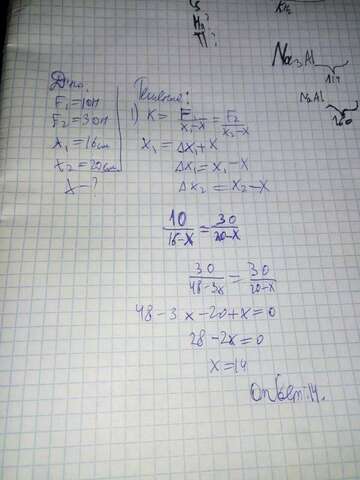 Hg?
Tl?
Na₃Al
Na₂Al
160
Дано:
F₁=10Н
F₂=30Н
x₁=16см
x₂=20см
x-?
Решение:
1) K= F₁/(x₁-x) = F₂/(x₂-x)
x₁=Δx₁+x
Δx₁=x₁-x
Δx₂=x₂-x
10/(16-x) = 30/(20-x)
30/(48-3x) = 30/(20-x)
48-3x-20+x=0
28-2x=0
x=14
Ответ:14.